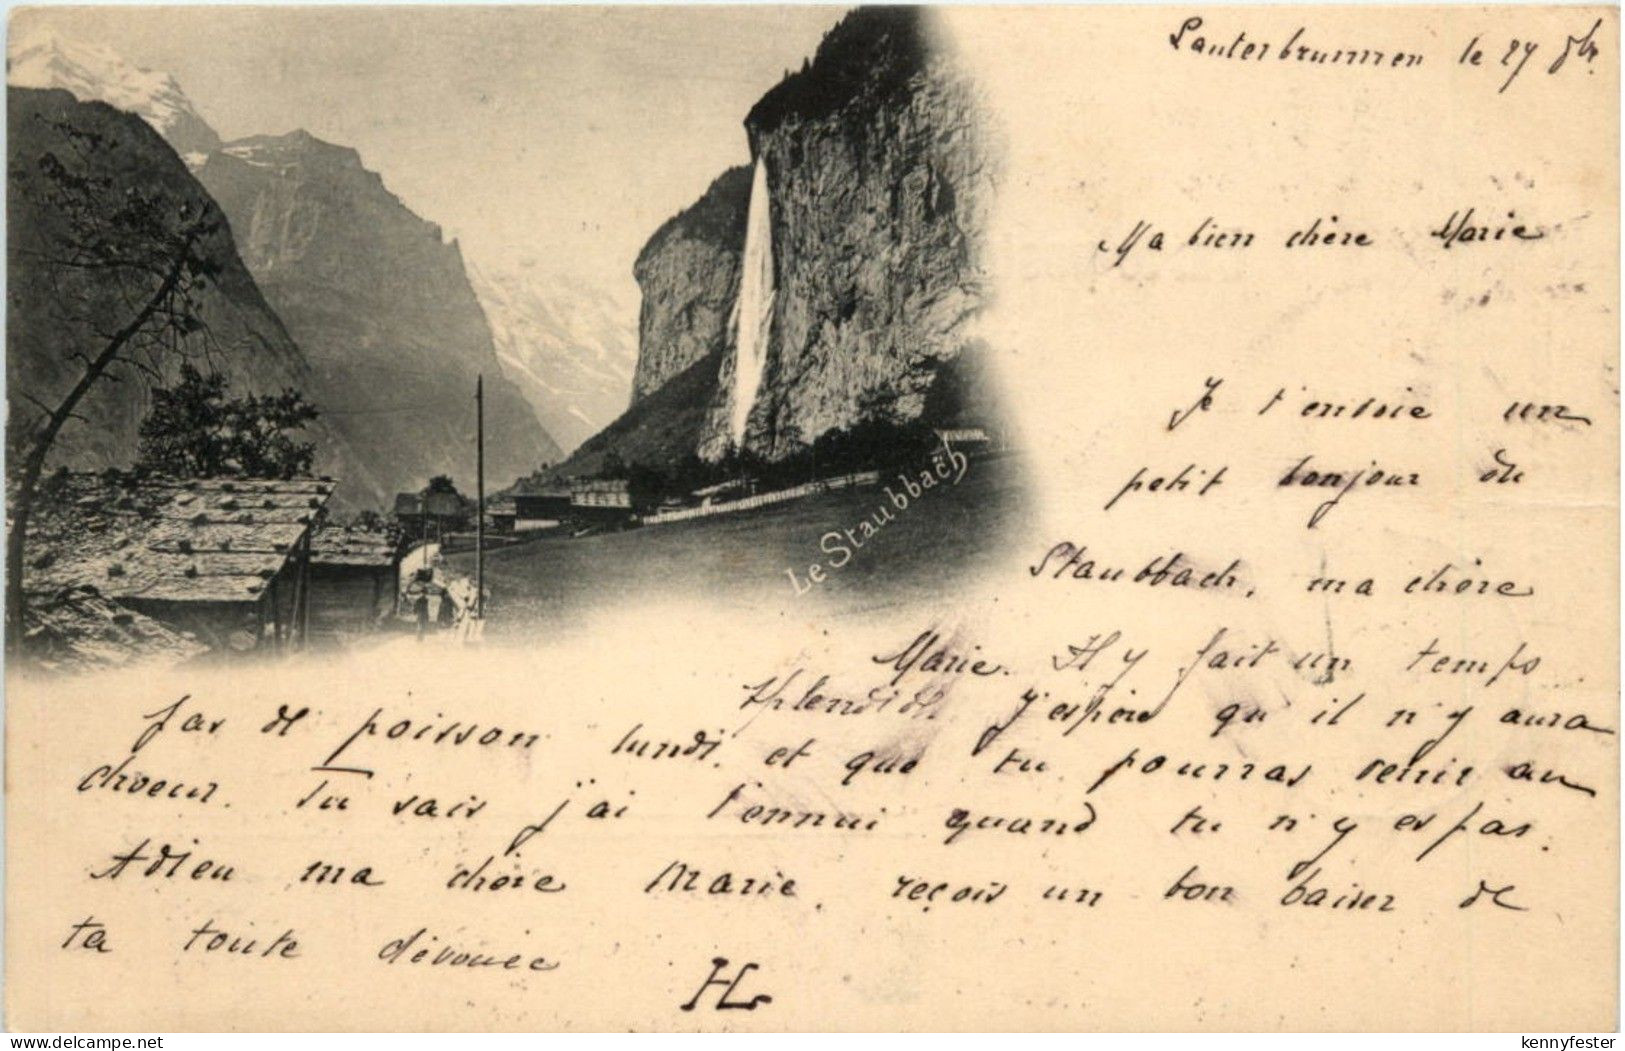 Lauterbrunnen le 27 8br.
Ma bien chère Marie
Je t'envoie un
petit bonjour du
Staubbach, ma chère
Marie. Il y fait un temps
splendide. J'espère qu'il n'y aura
pas de poisson lundi, et que tu pourras venir au
choeur. Tu sais j'ai l'ennui quand tu n'y es pas.
Adieu ma chère Marie, reçois un bon baiser de
ta toute dévouée
H
Le Staubbach
delcampe.net
kennyfester